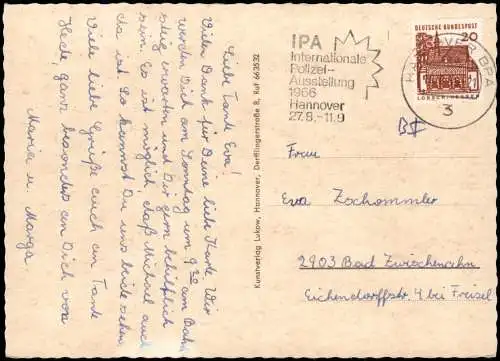 Liebe Tante Eva!
Vielen Dank für Deine liebe Karte. Wir
werden Dich am Sonntag um 9 30 am Bahn
steig erwarten und Dir gern behilflich
sein. Es ist möglich daß Michael auch
da ist. So kannst Du uns beide sehn.
Viele liebe Grüße euch ein Tante
Hede, ganz besonders an Dich von
Maria u. Marga.
Kunstverlag Lukow, Hannover, Derfflingerstraße 8, Ruf 663532
IPA
Internationale
Polizei-
Ausstellung
1966
Hannover
27.8.-11.9
HANNOVER BPA
3
DEUTSCHE BUNDESPOST
20
LORSCH/HESSEN
Frau
Eva Zschommler
2903 Bad Zwischenahn
Eichendorffstr. 4 bei Freisel